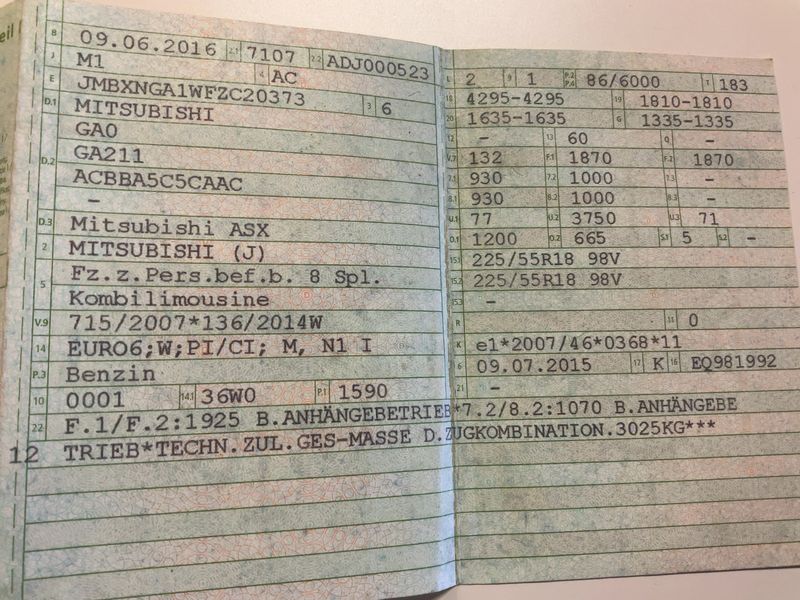 eil
B 09.06.2016 2.1 7107 2.2 ADJ000523
J M1 4 AC
E JMBXNGA1WFZC20373 3 6
D.1 MITSUBISHI
GA0
D.2 GA211
ACBBA5C5CAAC
–
D.3 Mitsubishi ASX
2 MITSUBISHI (J)
5 Fz.z.Pers.bef.b. 8 Spl.
Kombilimousine
V.9 715/2007*136/2014W
14 EURO6;W;PI/CI; M, N1 I
P.3 Benzin
10 0001 14.1 36W0 P.1 1590
L 2 9 1 P.2 P.4 86/6000 T 183
18 4295-4295 19 1810-1810
20 1635-1635 G 1335-1335
12 – 13 60 Q –
V.7 132 F.1 1870 F.2 1870
7.1 930 7.2 1000 7.3 –
8.1 930 8.2 1000 8.3 –
U.1 77 U.2 3750 U.3 71
O.1 1200 O.2 665 S.1 5 S.2 –
15.1 225/55R18 98V
15.2 225/55R18 98V
15.3 –
R 11 0
K e1*2007/46*0368*11
6 09.07.2015 17 K 16 EQ981992
21 –
22 F.1/F.2:1925 B.ANHÄNGEBETRIEB*7.2/8.2:1070 B.ANHÄNGEBE
12 TRIEB*TECHN.ZUL.GES-MASSE D.ZUGKOMBINATION.3025KG***